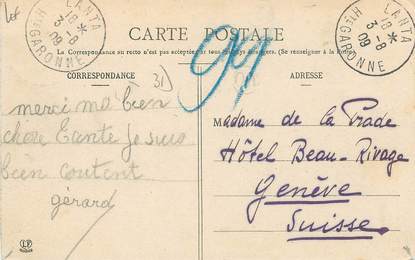 LANTA
18*
3-8
09
Hte GARONNE
LANTA
18*
3-8
09
Hte GARONNE
CARTE POSTALE
La Correspondance au recto n'est pas acceptée par tous les pays étrangers. (Se renseigner à la Poste).
CORRESPONDANCE
ADRESSE
merci ma bien
chère Tante je suis
bien content
gérard
Madame de la Prade
Hôtel Beau-Rivage
Genève
Suisse